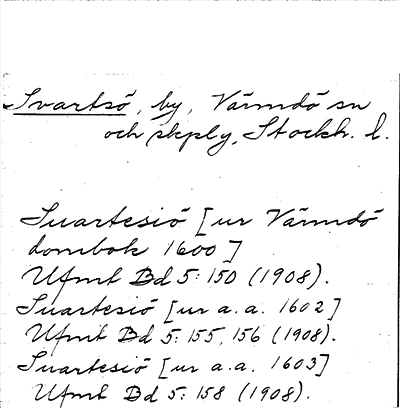 Svartsö, by, Värmdö sn
och skply, Stockh. l.
Suartesiö [ur Värmdö
dombok 1600]
Ufmt Bd 5: 150 (1908).
Suartesiö [ur a.a. 1602]
Ufmt Bd 5: 155, 156 (1908).
Suartesiö [ur a.a. 1603]
Ufmt Bd 5: 158 (1908).